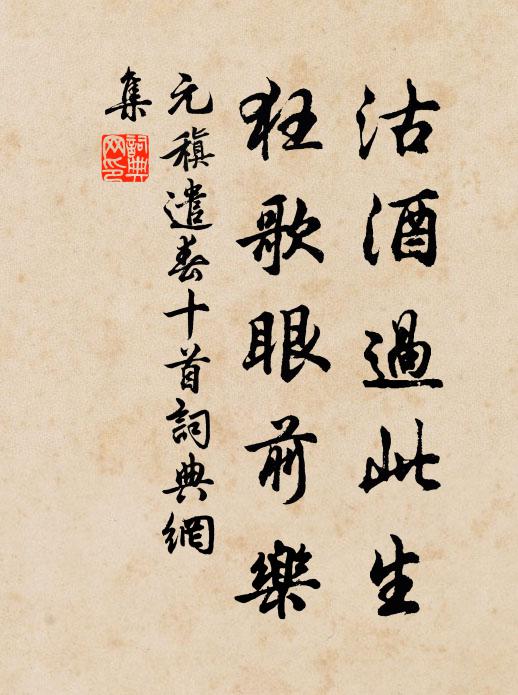 沽酒過此生
狂歌眼前樂
元稹遣春十首詞典網
集
詞典
网印